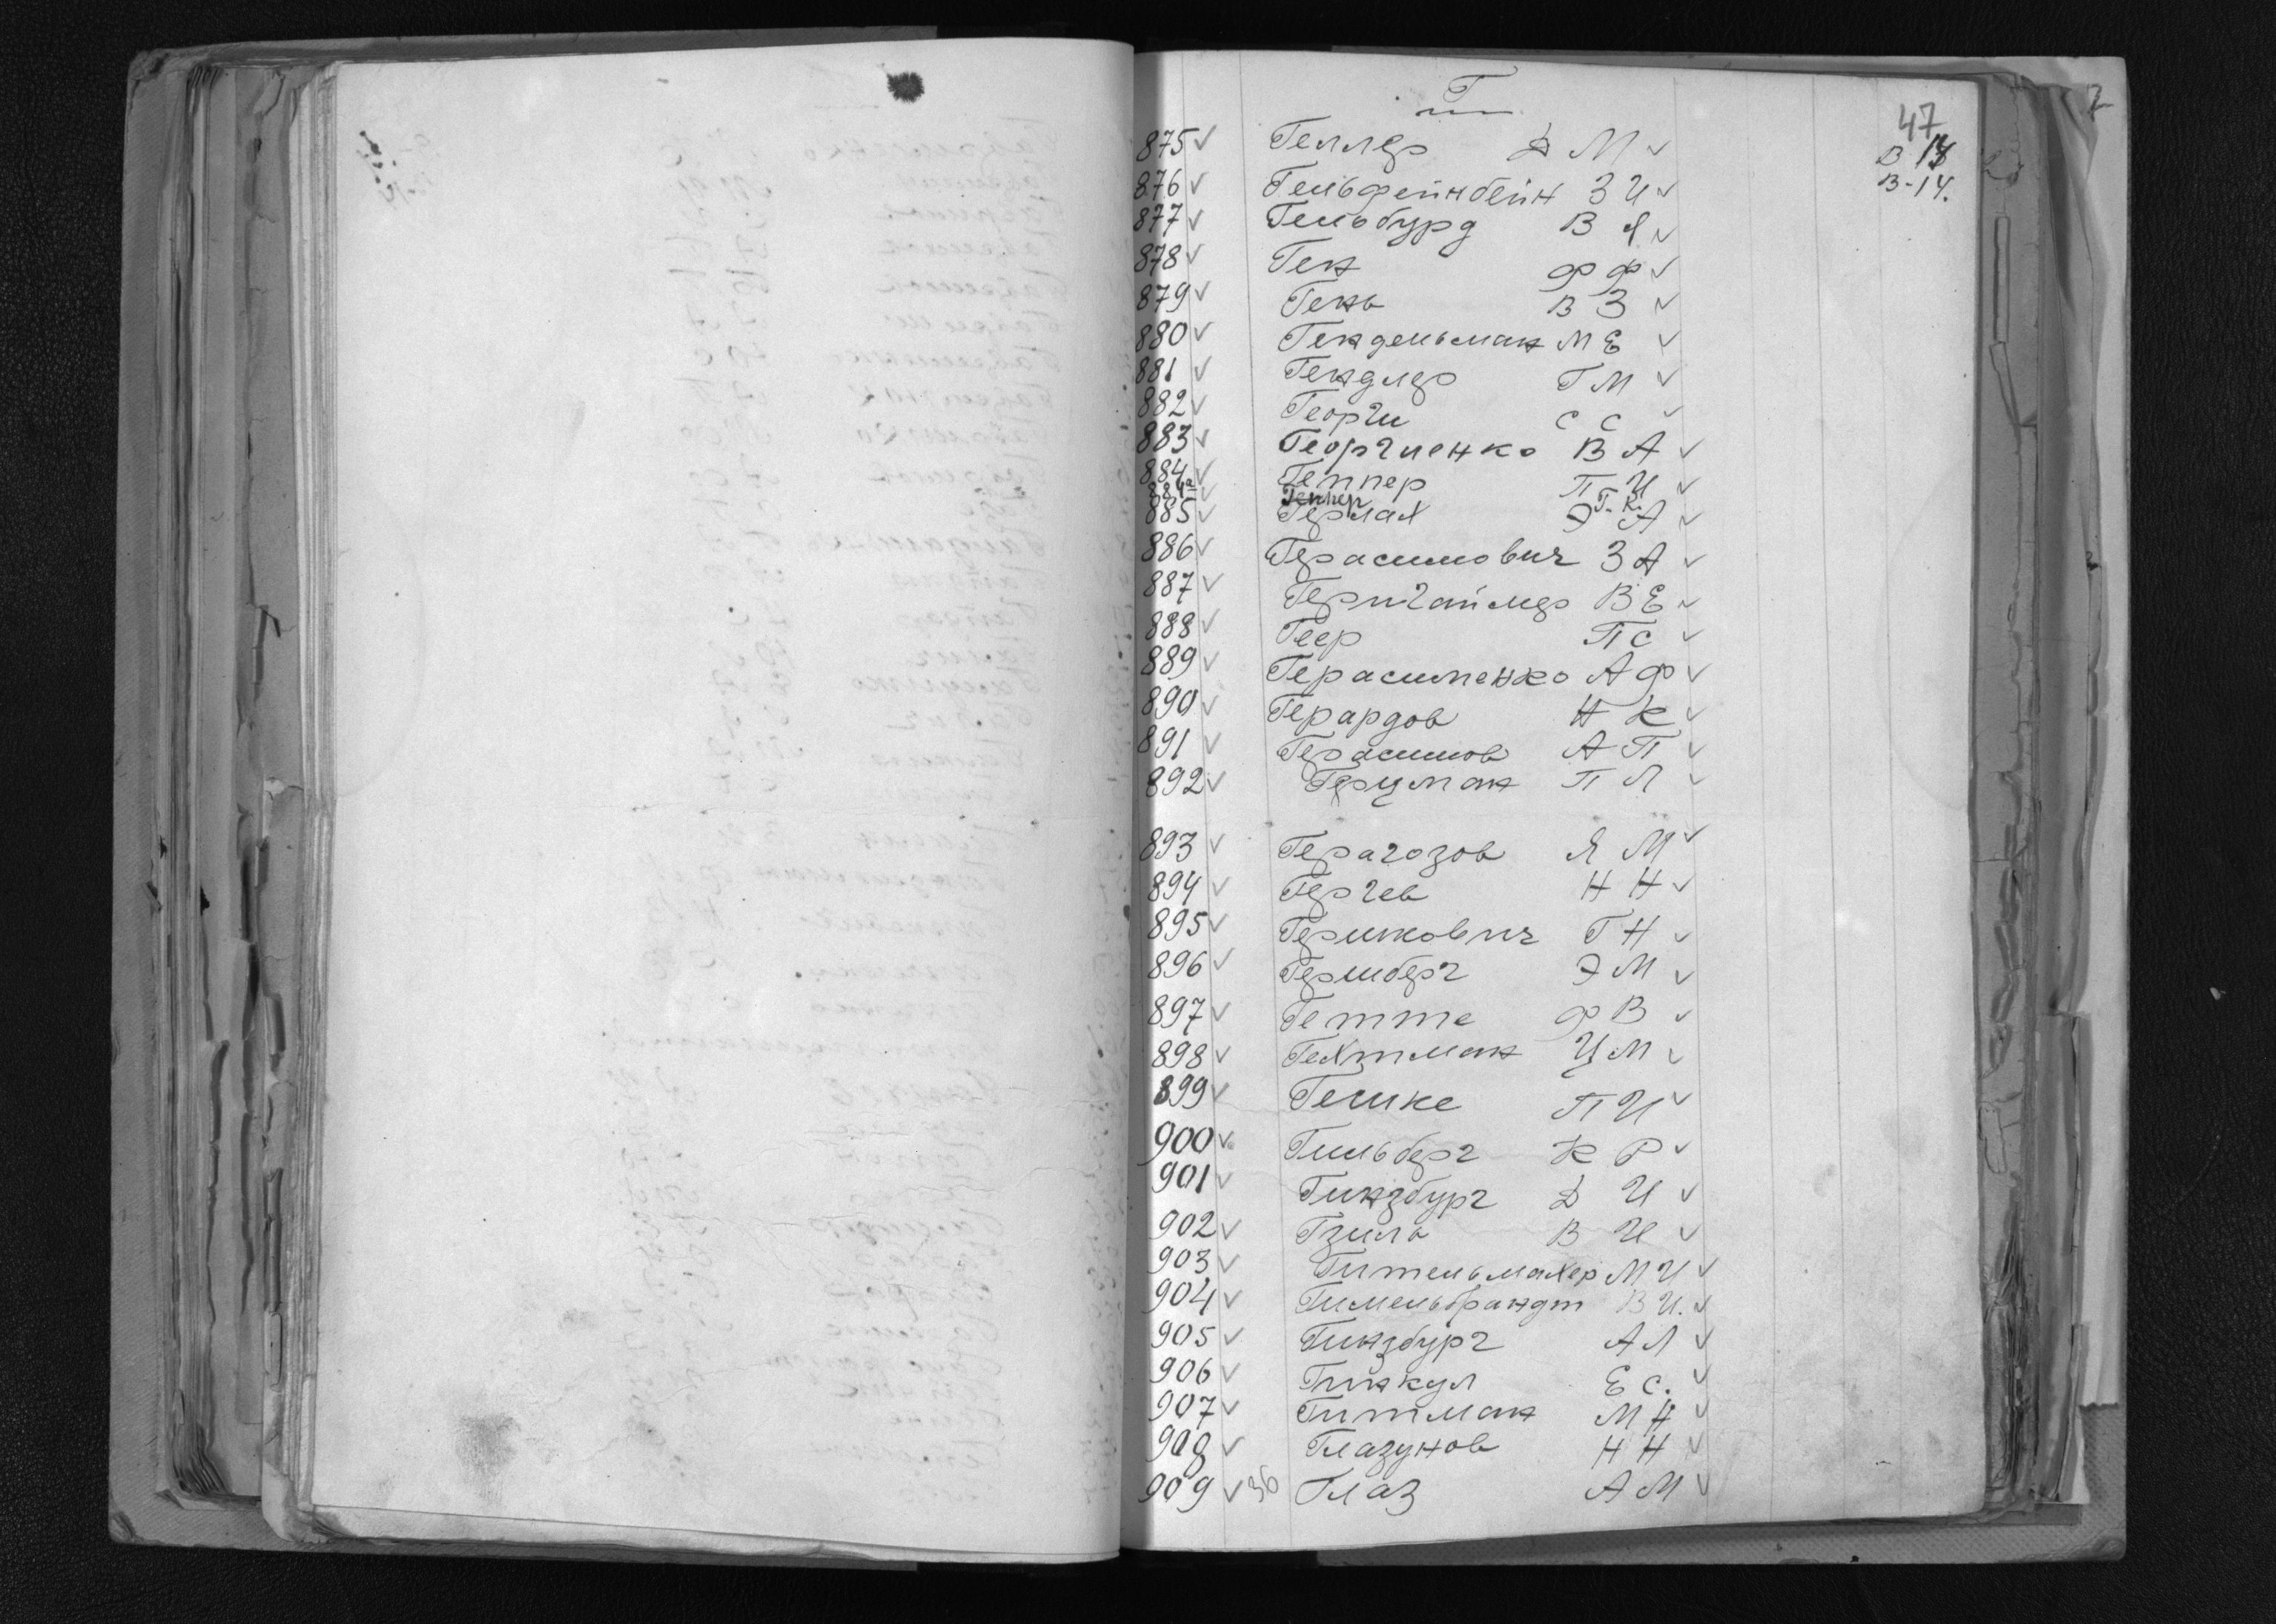 Г
47
875 Геллер Д М
В 13
876 Гельфейнбейн З И
В-14.
877 Гельбурд В Я
878 Ген Ф Ф
879 Гень В З
880 Гендельман М Е
881 Гендлер Г М
882 Георги С С
883 Георгиенко В А
884 Геппер П И
884а Геппер Г. К.
885 Герлах Э А
886 Герасимович З А
887 ВЕ
888 Геер П С
889 Герасименко А Ф
890 Герардов Н К
891 Герасимов А П
892 Герцман П Л
893 Герагозов Я М
894 Гергев Н Н
895 Гершкович Г Н
896 Гершберг Э М
897 Гетте Ф В
898 Гехтман Ц М
899 Гешке П И
900 Гильберг К Р
901 Гинзбург Д И
902 Гзиль В И
903 Гительмахер М И
904 Гимельбрандт В И.
905 Гинзбург А Л
906 Гинкул Е С.
907 Гитман М Н
908 Глазунов Н Н
909 36 Глаз А М